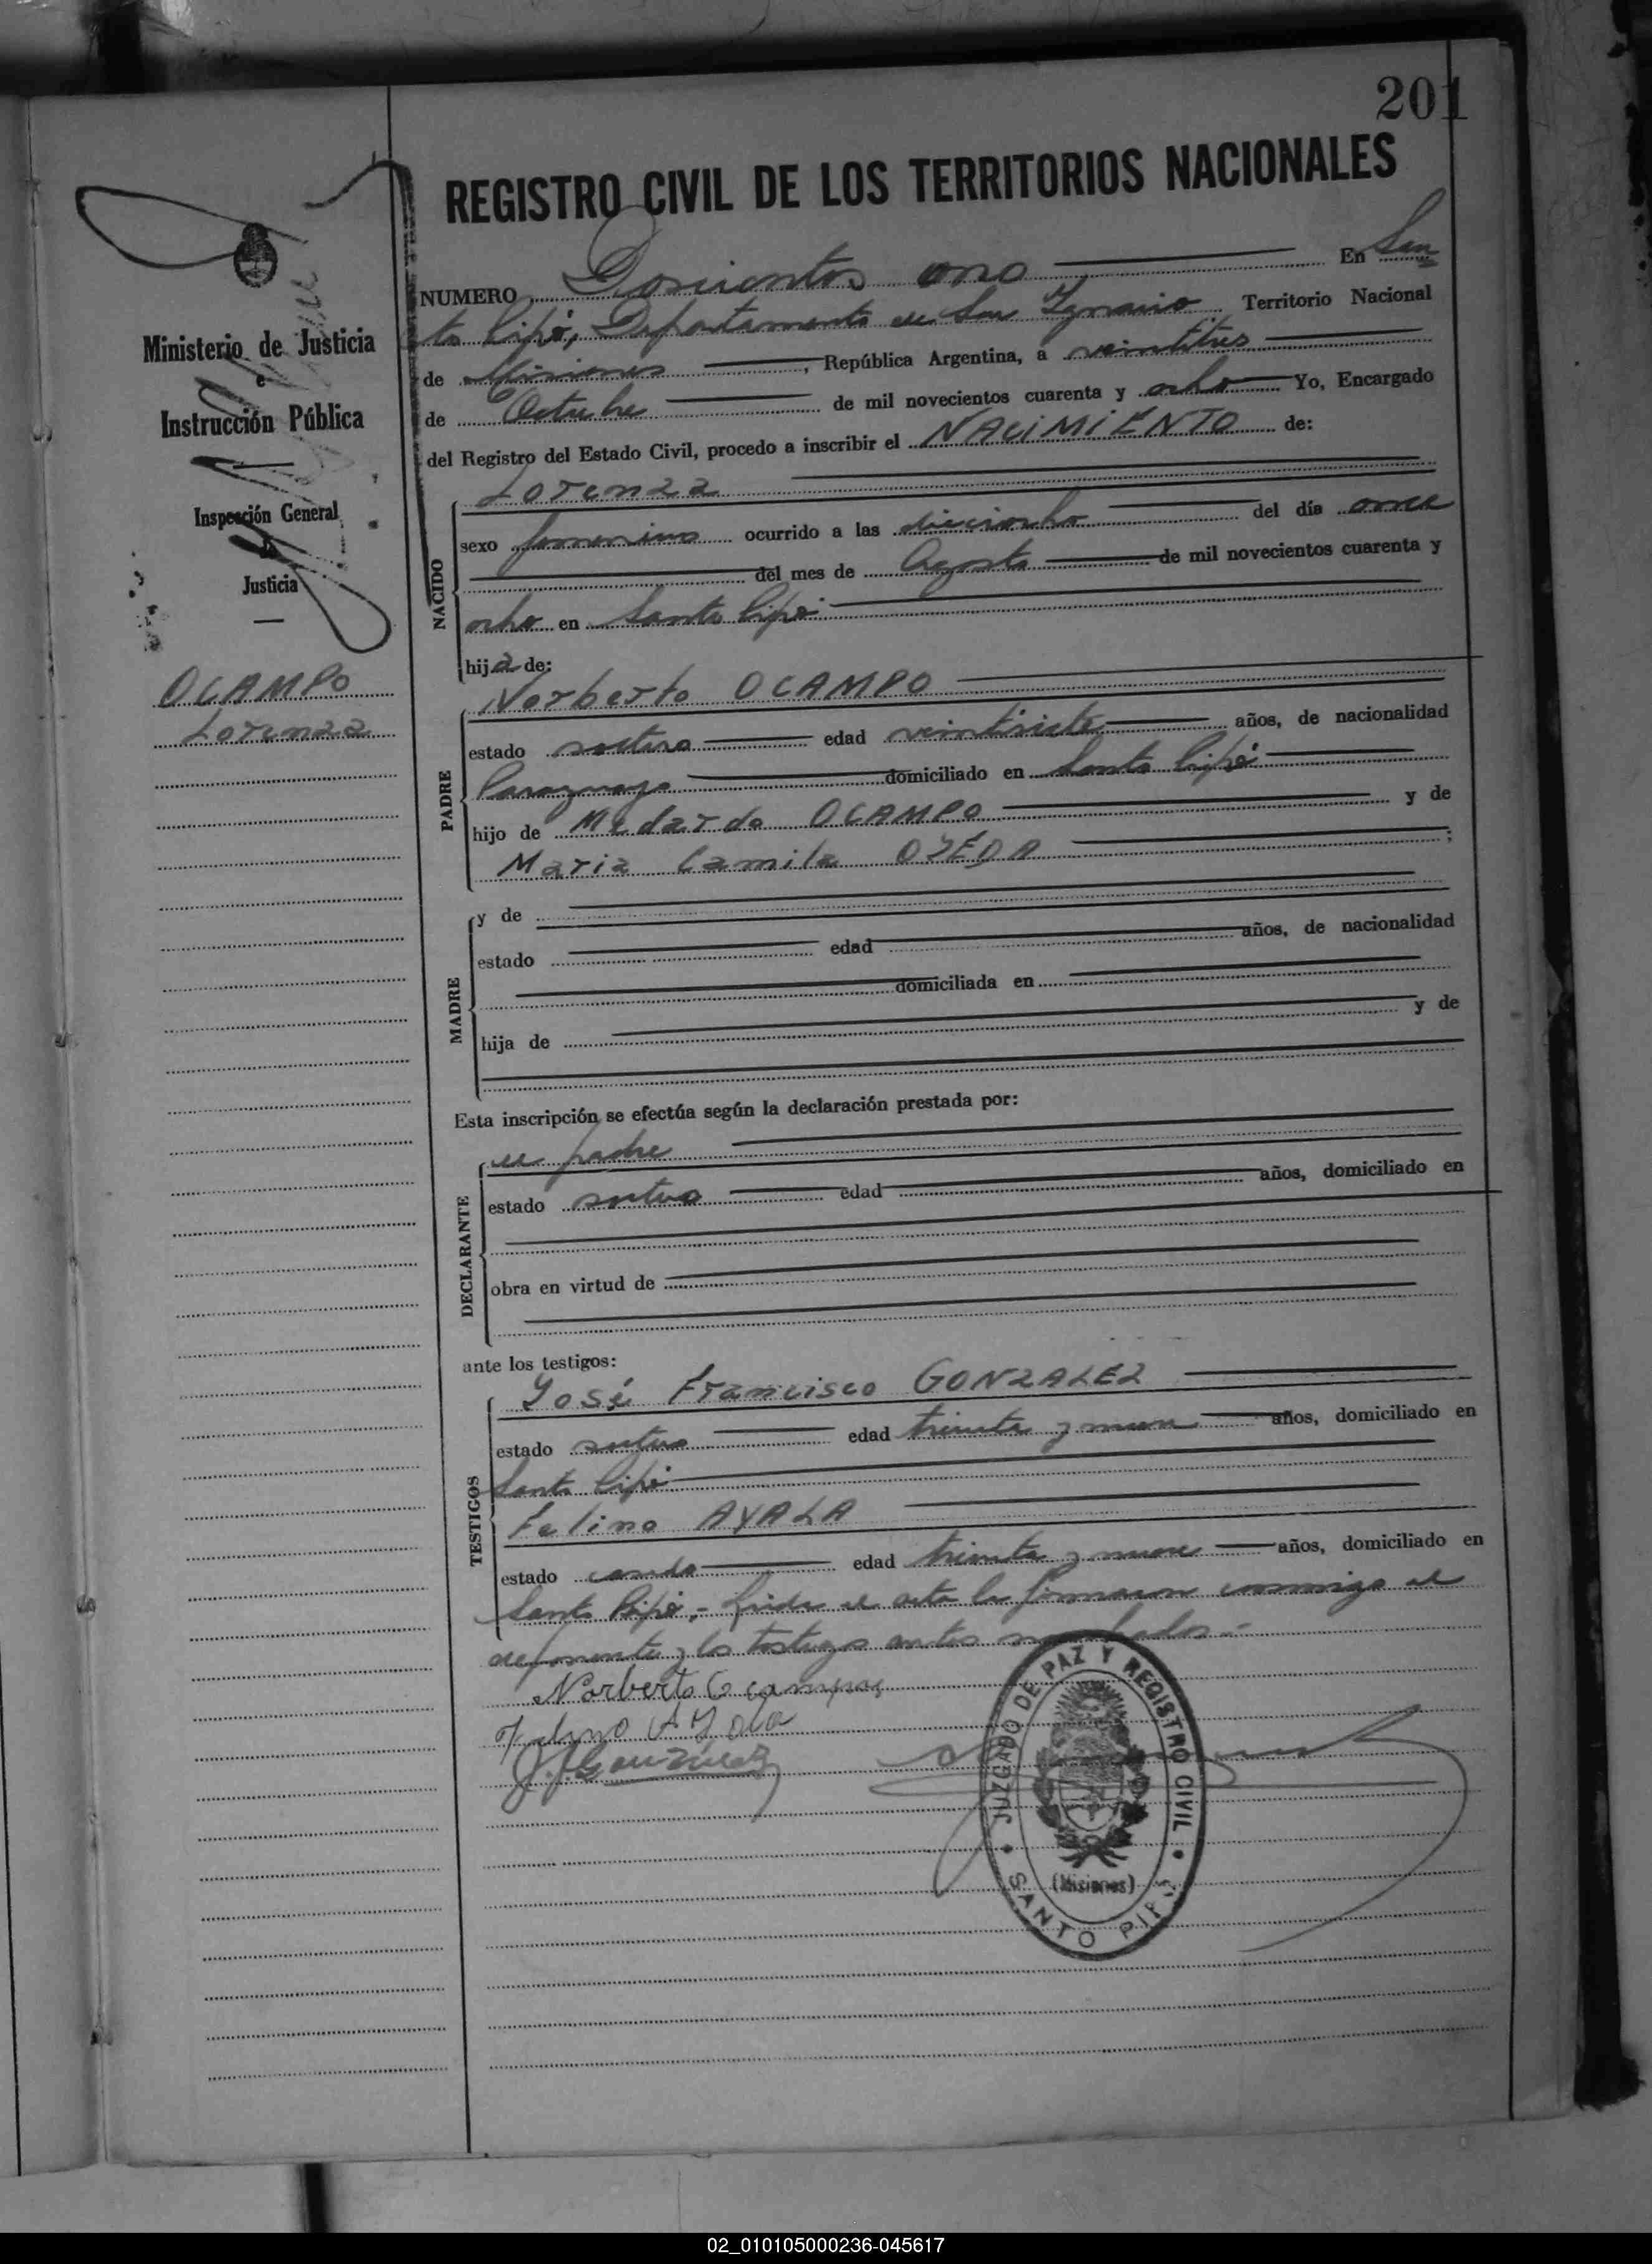 201
REGISTRO CIVIL DE LOS TERRITORIOS NACIONALES
NUMERO Doscientos uno En San
to Pipó, Departamento de San Ignacio Territorio Nacional
de Misiones, República Argentina, a veintitres
de Octubre de mil novecientos cuarenta y ocho Yo, Encargado
del Registro del Estado Civil, procedo a inscribir el NACIMIENTO de:
Ministerio de Justicia
e
Instrucción Pública
Inspección General
de
Justicia
OCAMPO
Lorenza
NACIDO
Lorenza
sexo femenino ocurrido a las dieciocho del día once
del mes de Agosto de mil novecientos cuarenta y
ocho en Santo Pipó
hija de:
PADRE
Norberto OCAMPO
estado soltero edad veintisiete años, de nacionalidad
Paraguayo domiciliado en Santo Pipó
hijo de Medardo OCAMPO y de
Maria Camila OJÉDA;
MADRE
y de
estado edad años, de nacionalidad
domiciliada en
hija de y de
Esta inscripción se efectúa según la declaración prestada por:
DECLARANTE
el padre
estado soltero edad años, domiciliado en
obra en virtud de
ante los testigos:
TESTIGOS
José Francisco GONZALEZ
estado soltero edad treinta y nueve años, domiciliado en
Santo Pipó
Felino AYALA
estado casado edad treinta y nueve años, domiciliado en
Santo Pipó.- Leida el acta la firmaron conmigo el
deponente y los testigos antes nombrados.-
Norberto Ocampos
Felino AYala
J. F. Gonzalez
JUZGADO DE PAZ Y REGISTRO CIVIL
(Misiones)
SANTO PIPÓ
02_010105000236-045617